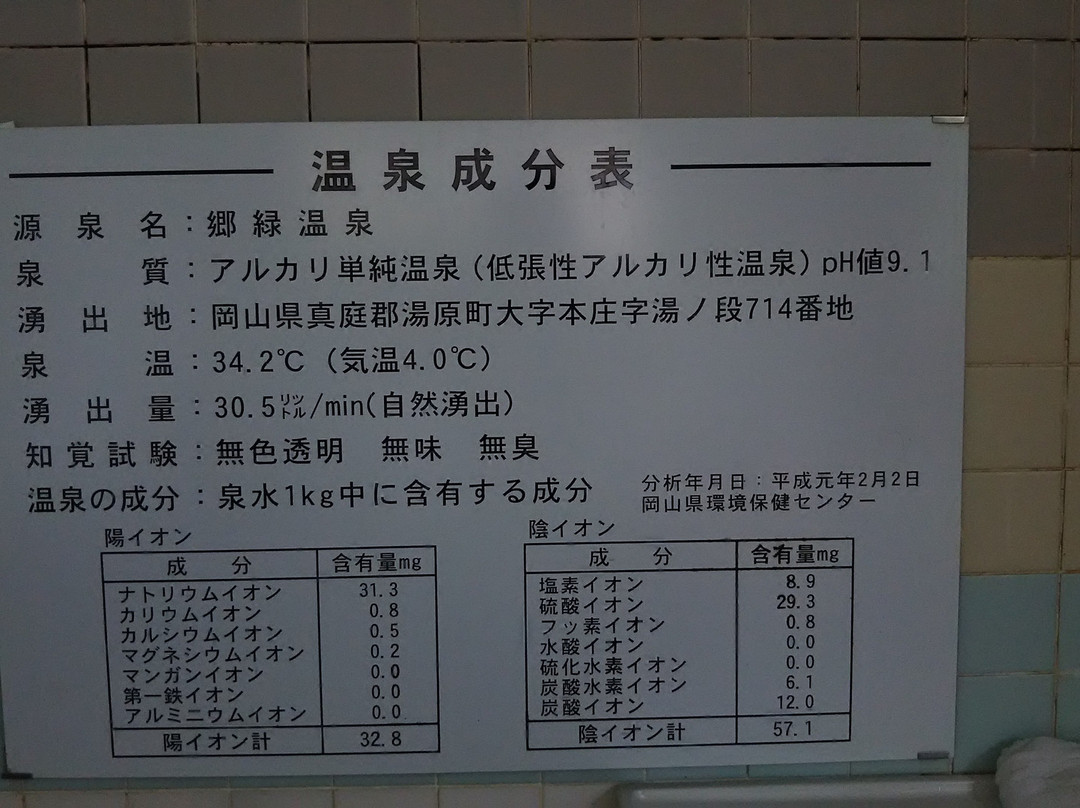 温泉成分表
源泉名：郷緑温泉
泉質：アルカリ単純温泉(低張性アルカリ性温泉) pH値9.1
湧出地：岡山県真庭郡湯原町大字本庄字湯ノ段714番地
泉温：34.2℃ (気温4.0℃)
湧出量：30.5リットル/min(自然湧出)
知覚試験：無色透明 無味 無臭
温泉の成分：泉水1kg中に含有する成分
分析年月日：平成元年2月2日
岡山県環境保健センター
陽イオン
成分 含有量mg
ナトリウムイオン 31.3
カリウムイオン 0.8
カルシウムイオン 0.5
マグネシウムイオン 0.2
マンガンイオン 0.0
第一鉄イオン 0.0
アルミニウムイオン 0.0
陽イオン計 32.8
陰イオン
成分 含有量mg
塩素イオン 8.9
硫酸イオン 29.3
フッ素イオン 0.8
水酸イオン 0.0
硫化水素イオン 0.0
炭酸水素イオン 6.1
炭酸イオン 12.0
陰イオン計 57.1